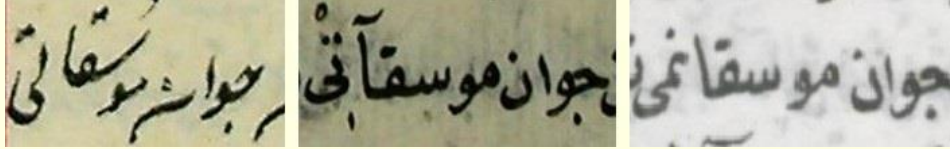 جوان موسقاتی
جوان موسقآتی
جوان موسقانمی